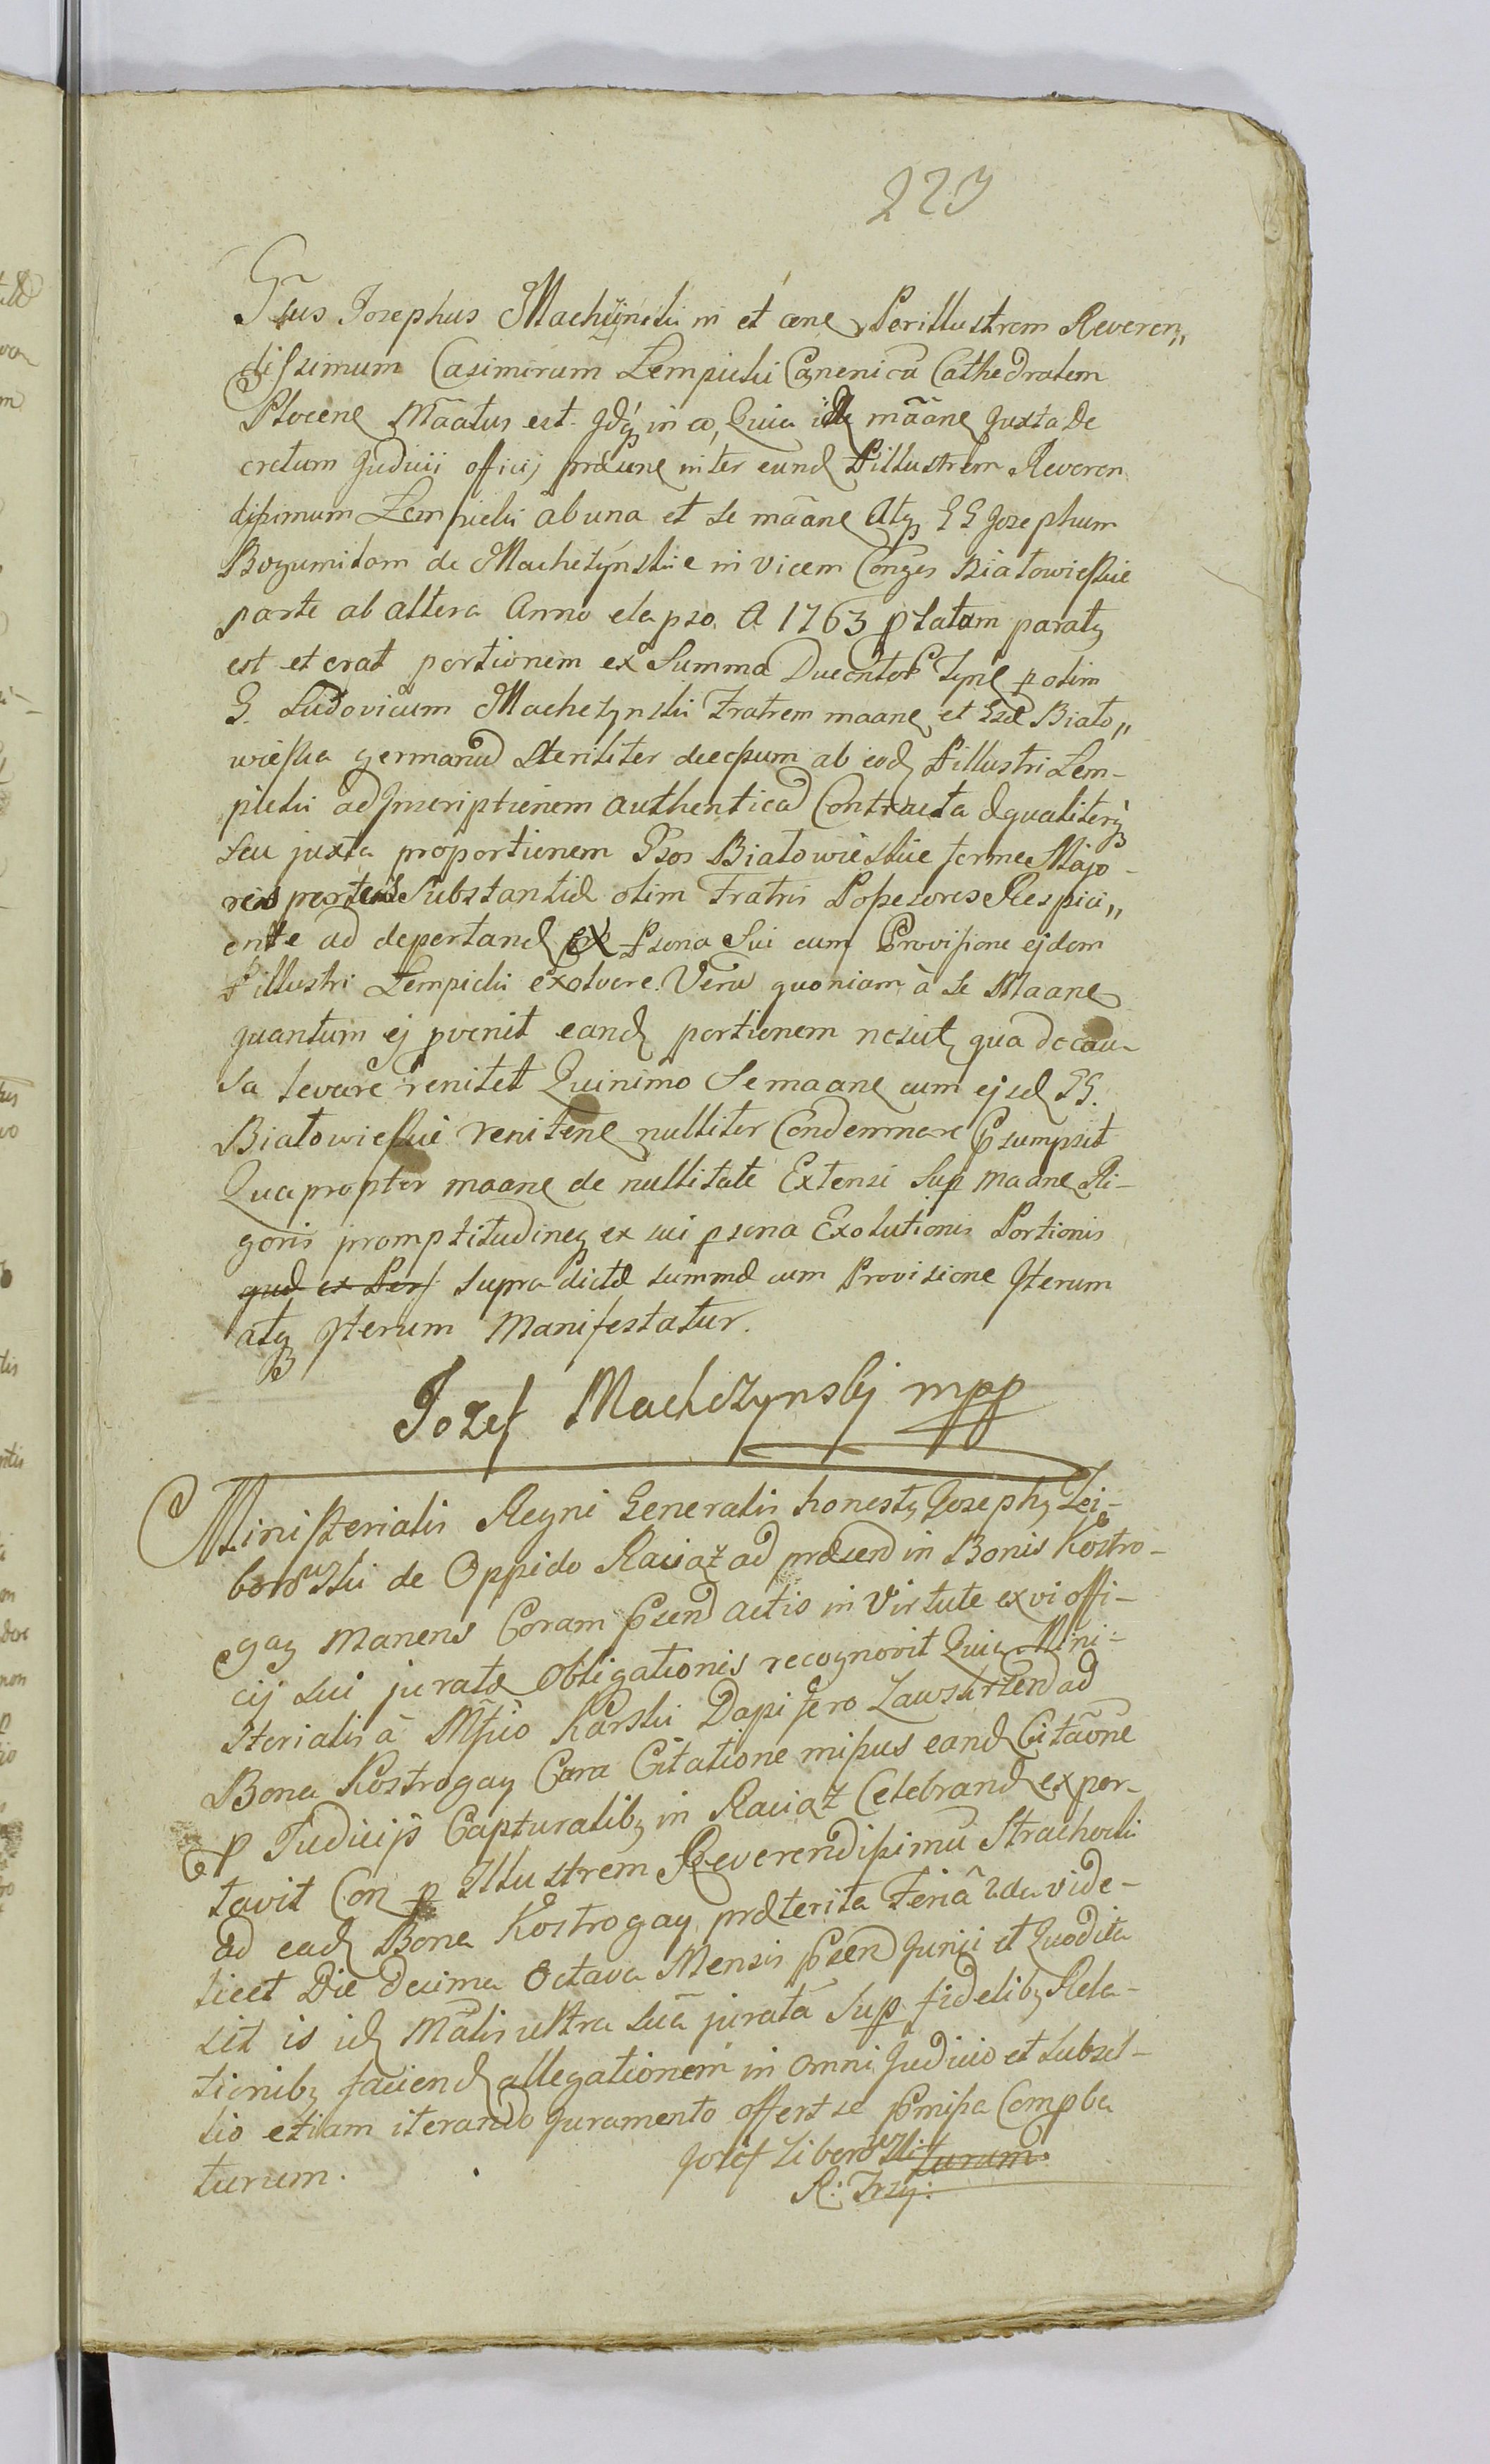 223
Gsus Josephus Machczÿnski in et cone Perillustrem Reveren„
dissimum Casimirum Lempicki Canonicu Cathedralem
Plocene Maatus est. Idq in eo, Quia ille maane Juxta De
cretum Judicii officij præsine inter eund Pillustrem Reveren
dissimum Lempicki ab una et se maane Atq GG Josephum
Bogumilam de Machczÿnskie in vicem Conges Białowieskie
parte ab altera Anno elapso A 1763 platam paratq
est et erat portionem ex Summa Ducentor Tynf p olim
G. Ludovicum Machczynski Fratrem maane et Gsæ Biało„
wieska germanu steriliter decessum ab eod Pillustri Lem-
picki ad Inscriptionem authenticâ Contracta æqualiterq
seu juxta proportionem Gsos Białowieskie ferme Majo-
ris partem Substantiæ olim Fratris Possessores Respici„
ente ad deportand ex Psona Sui cum Provisione ejdem
Pillustri Lempicki exolvere. Veru quoniam à se Maane
quantum ej pvenit eand portionem nescit qua de cau-
sa levare renitet Quinimo Se maane cum ejsd GG.
Białowieskie renitene nulliter Condemnare Psumpsit
Quapropter maane de nullitate Extensi Sup maane Ri-
goris promptitudineq ex sui psona Exolutionis Portionis
quæ ex Per supra dictæ summæ cum Provisione Iterum
atq Iterum Manifestatur.
Jozef Machczynskj mpp
Ministerialis Regni Generalis honestq Josephq Lei-
borowski de Oppido Raciąż ad præsend in Bonis Kostro-
gay Manens Coram Psend actis in Virtute ex vi offi-
cij sui juratæ Obligationis recognovit Quia Mini-
sterialis à Mfico Karski Dapifero Zawskrzen ad
Bona Kostrogay Cum Citatione missus eand Citãone
p Judicijs Capturalibq in Raciąż Celebrand expor-
tavit Con p Illustrem Reverendissimu Strachocki
ad ead Bona Kostrogay præterita Feriâ 2da vide-
licet Die Decima Octava Mensis Psen Junii et Quod ita
sit is id Mãlis ultra suã juratã Sup fidelibq Rela-
tionibq faciend allegationem in omni Judicio et subsel-
lio etiam iterando Juramento offert se Pmissa Compba
turum.
Josef Liborowski turum.
R: Trzy: